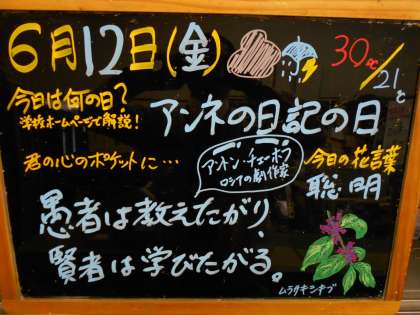 6月12日(金)
30℃/21℃
今日は何の日?
学校ホームページで解説!
アンネの日記の日
君の心のポケットに…
アントン・チェーホフ
ロシアの劇作家
今日の花言葉
聡明
愚者は教えたがり、
賢者は学びたがる。
ムラサキシキブ